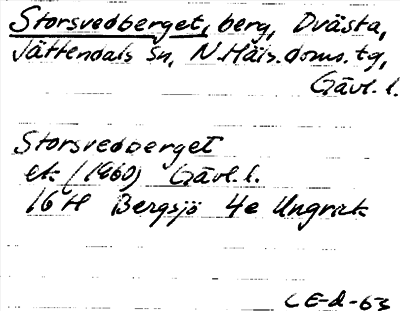 Storsvedberget, berg, Dvästa,
Jättendals sn, N.Häls.doms.tg,
Gävl.l.
Storsvedberget
ek (1960) Gävl.l.
16 H Bergsjö 4e Ungrek
CE-d-63